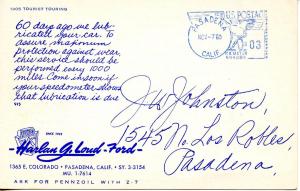 1005 TOURIST TOURING
60 days ago we lub-
ricated your car. To
assure maximum
protection against wear,
this service should be
performed every 1000
miles. Come in soon if
your speedometer shows
that lubrication is due
SINCE 1923
Harlan G. Loud-Ford
1365 E. COLORADO • PASADENA, CALIF. • SY. 3-3154
MU. 1-7614
ASK FOR PENNZOIL WITH Z-7
PASADENA
CALIF.
U.S. POSTAGE
03
J W Johnston
1545 N. Los Robles,
Pasadena,